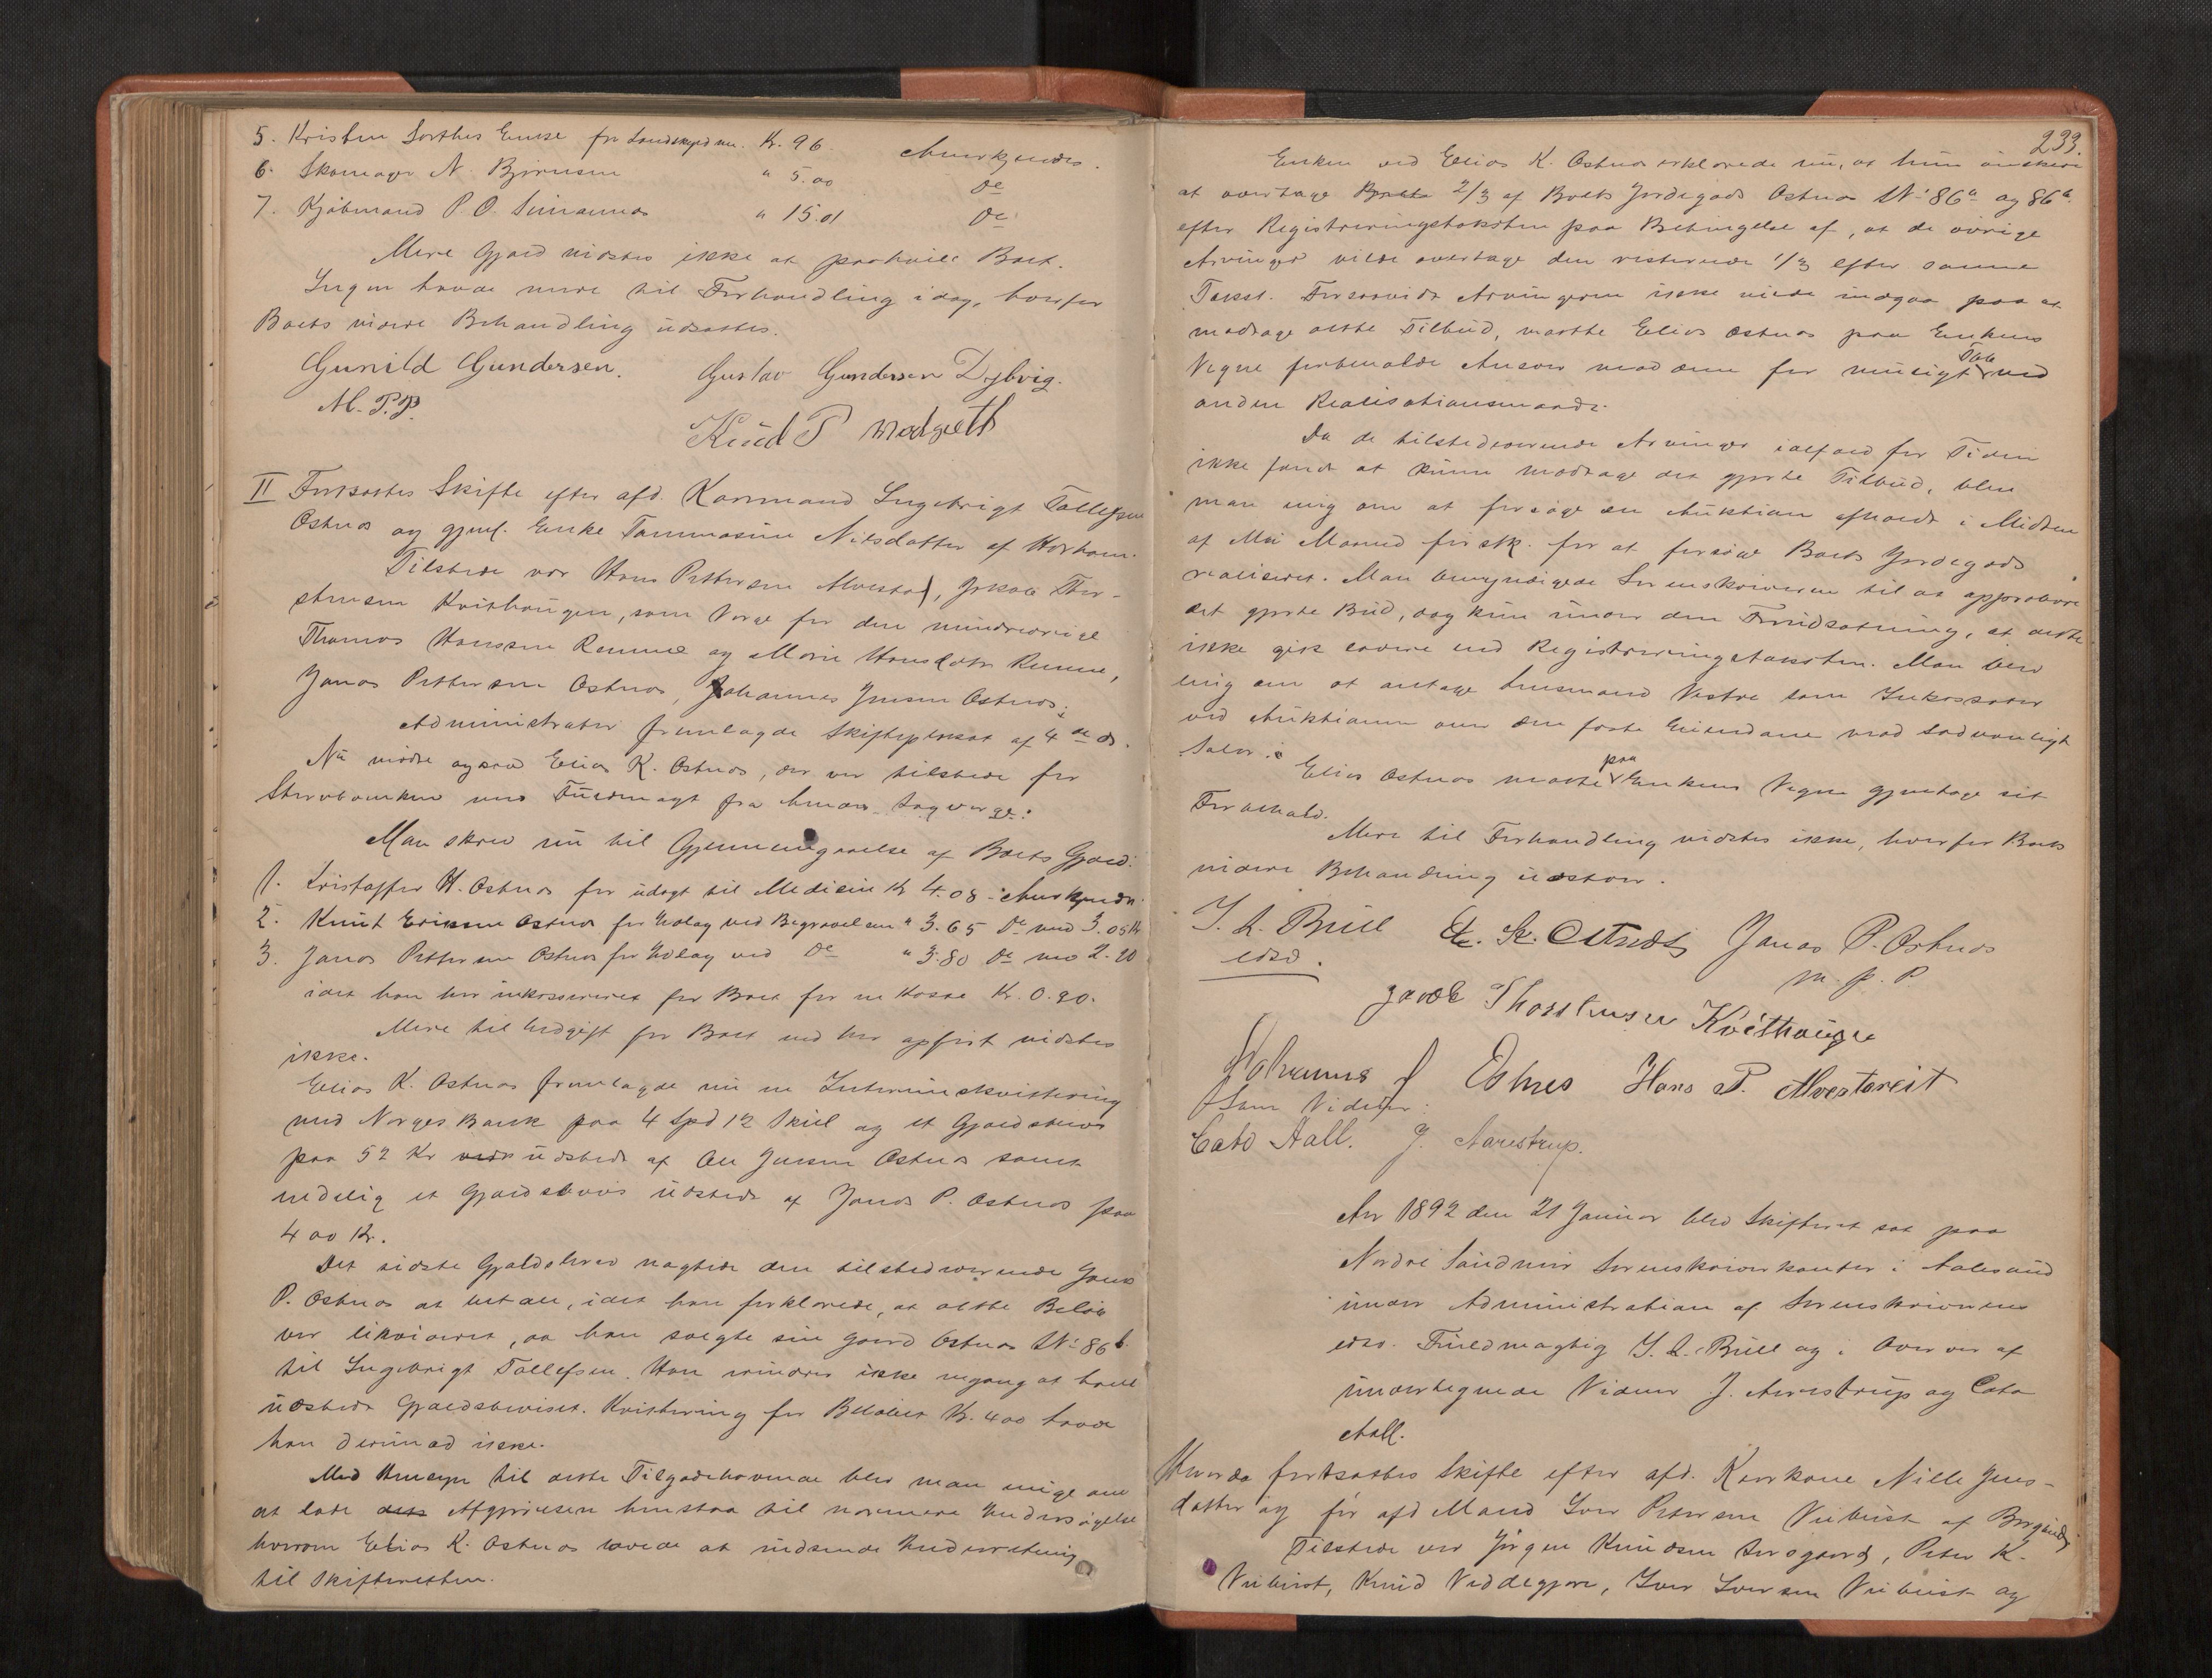 5. Kristen Sorthes Enke for Landskyld m.m. Kr. 96. Anerkjendes.
6. Skomager N. Bjørnsen " 5.00 Do
7. Kjøbmand P. O. Simannæs " 15.01 Do
Mere Gjæld vidstes ikke at paahvile Boet.
Ingen havde mere til Forhandling idag, hvorfor
Boets videre Behandling udsattes.
Gunild Gundersen. Gustav Gundersen Dybvig.
M. P. P. Knud P
II Fortsattes Skifte efter afd. Kaarmand Ingebrigt Tollefsen
Østnæs og gjenl. Enke Tommasine Nilsdatter af Harham.
Tilstede var Hans Pettersen Alvestad, Jakob Thor-
stensen Kvithaugen, som Værge for den mindreaarige
Thomas Hanssen Rønne og Marie Hansdatter Rønne,
Jonas Pettersen Østnæs, Johannes Jensen Østnæs.
Administrator fremlagde Skifteplakat af 4de ds.
Nu mødte ogsaa Elias K. Østnæs, der var tilstede for
Stervboenken med Fuldmagt fra hendes Lagværge.
Man skred nu til Gjennemgaaelse af Boets Gjæld:
1. Kristoffer H. Østnæs for udlagt til Medicin Kr 4.08 - Anerkjendes
2. Knut Eriksen Østnæs for Udlæg ved Begravelsen " 3.65 Do med 3.05 Kr
3. Jonas Pettersen Østnæs for Udlæg ved Do " 3.80 Do med 2.90
idet han har inkasseret for Boet for en Kasse Kr. 0.90.
Mere til Udgift for Boet end her opført vidstes
ikke.
Elias K. Østnæs fremlagde nu en Interimskvittering
med Norges Bank paa 4 Spd 12 Skill og et Gjældsbrev
paa 52 Kr udstedt af Ole Jensen Østnæs samt
endelig et Gjældsbevis udstedt af Jonas P. Østnæs paa
400 Kr.
Det sidste Gjældsbrev nægtede den tilstedeværende Jonas
P. Østnæs at betale, idet han forklarede, at dette Beløb
var likvideret, da han solgte sin Gaard Østnæs No 86 b
til Ingebrigt Tollefsen. Han mindes ikke engang at have
udstedt Gjældsbeviset. Kvittering for Beløbet Kr. 400 havde
han derimod ikke.
Med Hensyn til dette Tilgodehavende blev man enige om
at lade Afgjørelsen henstaa til nærmere Undersøgelse
hvorom Elias K. Østnæs lovede at indsende Underretning
til Skifteretten.
233.
Enken ved Elias K. Østnæs erklærede nu, at hun ønskede
at overtage 2/3 af Boets Jordegods Østnæs No 86 a og 86 b
efter Registreringstaksten paa Betingelse af, at de øvrige
Arvinger vilde overtage den resterende 1/3 efter samme
Takst. Forsaavidt Arvingerne ikke vilde indgaa paa at
modtage dette Tilbud, maatte Elias Østnæs paa Enkens
Vegne forbeholde Ansvar mod dem for muligt Tab ved
anden Realisationsmaade.
Da de tilstedeværende Arvinger ialfald for Tiden
ikke fandt at kunne modtage det gjorte Tilbud, blev
man enig om at forsøge en Auktion afholdt i Midten
af Mai Maaned førstk. for at forsøge Boets Jordegods
realiseret. Man bemyndigede Sorenskriveren til at approbere
det gjorte Bud, dog kun under den Forudsætning, at dette
ikke gik lavere end Registreringstaksten. Man blev
enig om at antage Lensmand Vestre som Inkassator
ved Auktionen over den faste Eiendom mod sædvanligt
Salær.
Elias Østnæs maatte paa Enkens Vegne gjentage sit
Forbehold.
Mere til Forhandling vidstes ikke, hvorfor Boets
videre Behandling udstaar.
J. L. Bull E. K. Østnæs Jonas P. Østnæs
edsv. m. p. P
Jacob Thorstensen Kvithaugen
Johannes J Østnes Hans P. Alvestareit
Som Vidner:
Cato Aall. J. Aarestrup.
Aar 1892 den 21 Januar blev Skifteret sat paa
Nordre Søndmør Sorenskriverkontor i Aalesund
under Administration af Sorenskriverens
edsv. Fuldmægtig J. L. Bull og i Overvær af
undertegnede Vidner J. Aarestrup og Cato
Aall.
Hvorda fortsattes Skifte efter afd. Kaarkone Nille Jens-
datter og før afd Mand Iver Petersen Viebust af Borgund.
Tilstede var Jørgen Knudsen, Peter K.
Viebust, Knud Veddegjære, Iver Iversen Viebust og